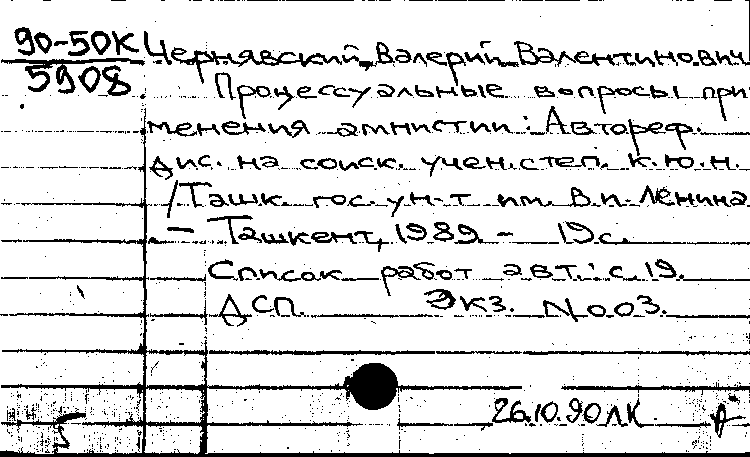 90-50К Чернявский, Валерий Валентинович
5908 Процессуальные вопросы при
менения амнистии: Автореф.
дис. на соиск. учен. степ. к.ю.н.
/Ташк. гос. ун-т им. В.И. Ленина
— Ташкент, 1989. - 19 с.
Список работ авт.: с. 19.
ДСП. Экз. N 003.
26.10.90 ЛК